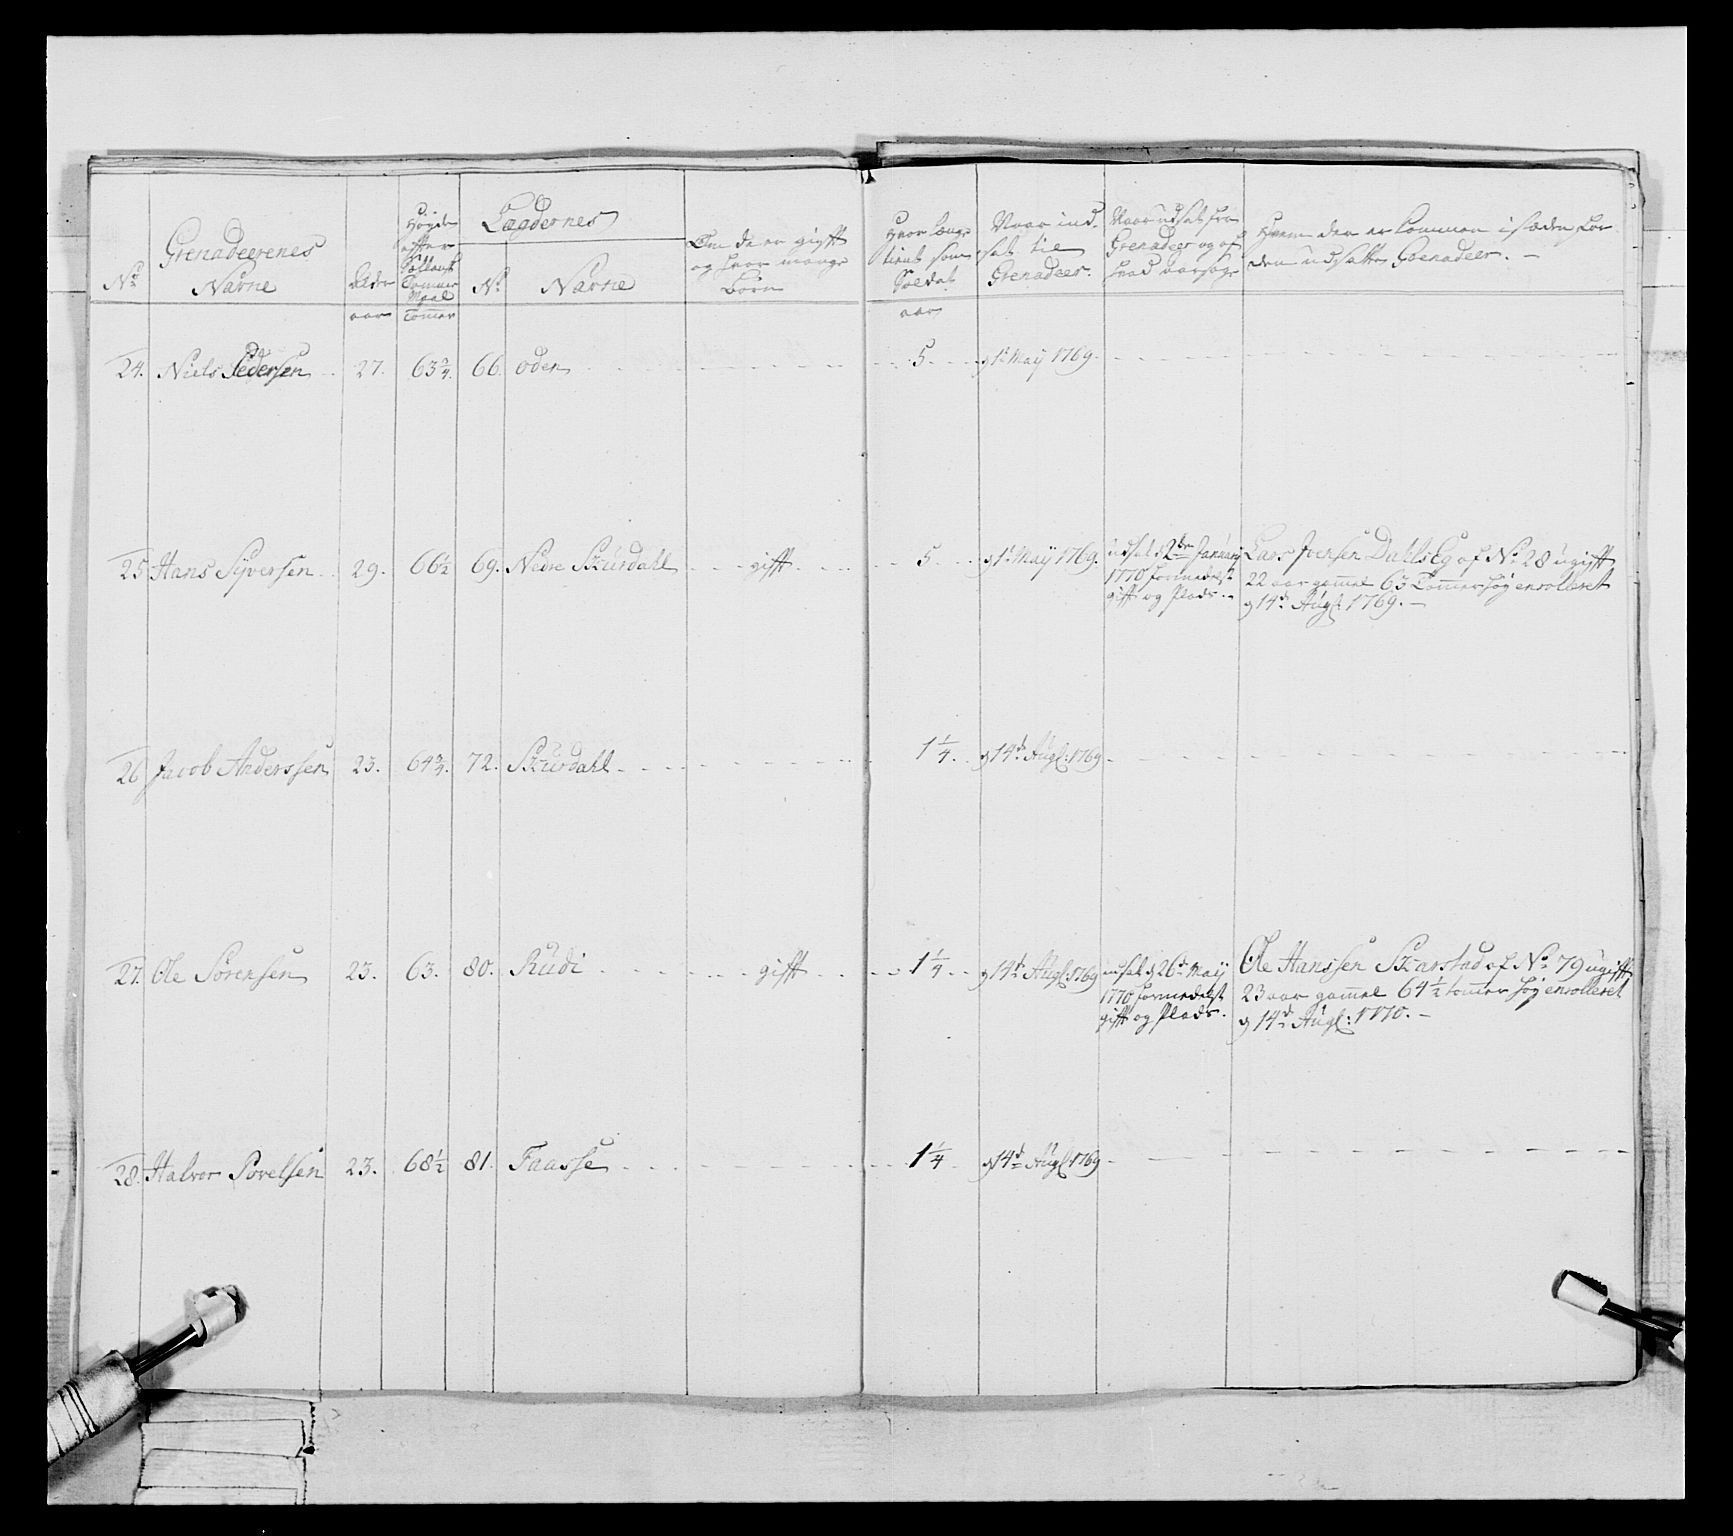 No
Grenadeerenes
Navne
Alder
aar
Høyde
efter
Hollansk
Tommer
Maal
Tommer
Lægdernes
No
Navne
Om de er gifft
og hvor mange
Børn
Hvor længe
tient som
Soldat
aar
Naar ind-
sat til
Grenadeer.
Naar udsat fra
Grenadeer og af
hvad aarsage
Hvem der er kommen i stæden for
den udsatte Grenadeer. -
24. Niels Pedersen 27. 63 3/4. 66. oden 5. d 1te Maÿ 1769.
25 Hans Syversen 29. 66 1/2 69. Nedre Skurdahl gifft 5. d 1te Maÿ 1769.
udsat d 2den January
1770 formedelst
gifft og Plads. -
Lars Iversen Dahlseg af No 28 ugifft
22 aar gammel 63 Tommer høy enrolleret
d 14de Augt 1769. -
26 Jacob Anderssen 23. 64 3/4. 72. Skurdahl 1 1/4. d 14de Augt: 1769
27. Ole Sörensen 23. 63. 80. Rudi gifft 1 1/4 d 14de Augt 1769
udsat d 26de Maÿ
1770 formedelst
gifft og Plads.
Ole Hanssen Skarstad af No 79 ugifft
23 aar gammel 64 1/2 tommer høy enrolleret
d 14de Augt: 1770. -
28. Halvor Povelsen 23. 68 1/2 81. Faasse 1 1/4 d 14de Augt 1769